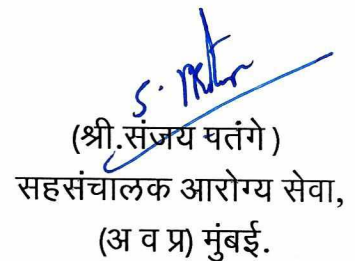 (श्री.संजय पतंगे)
सहसंचालक आरोग्य सेवा,
(अ व प्र) मुंबई.